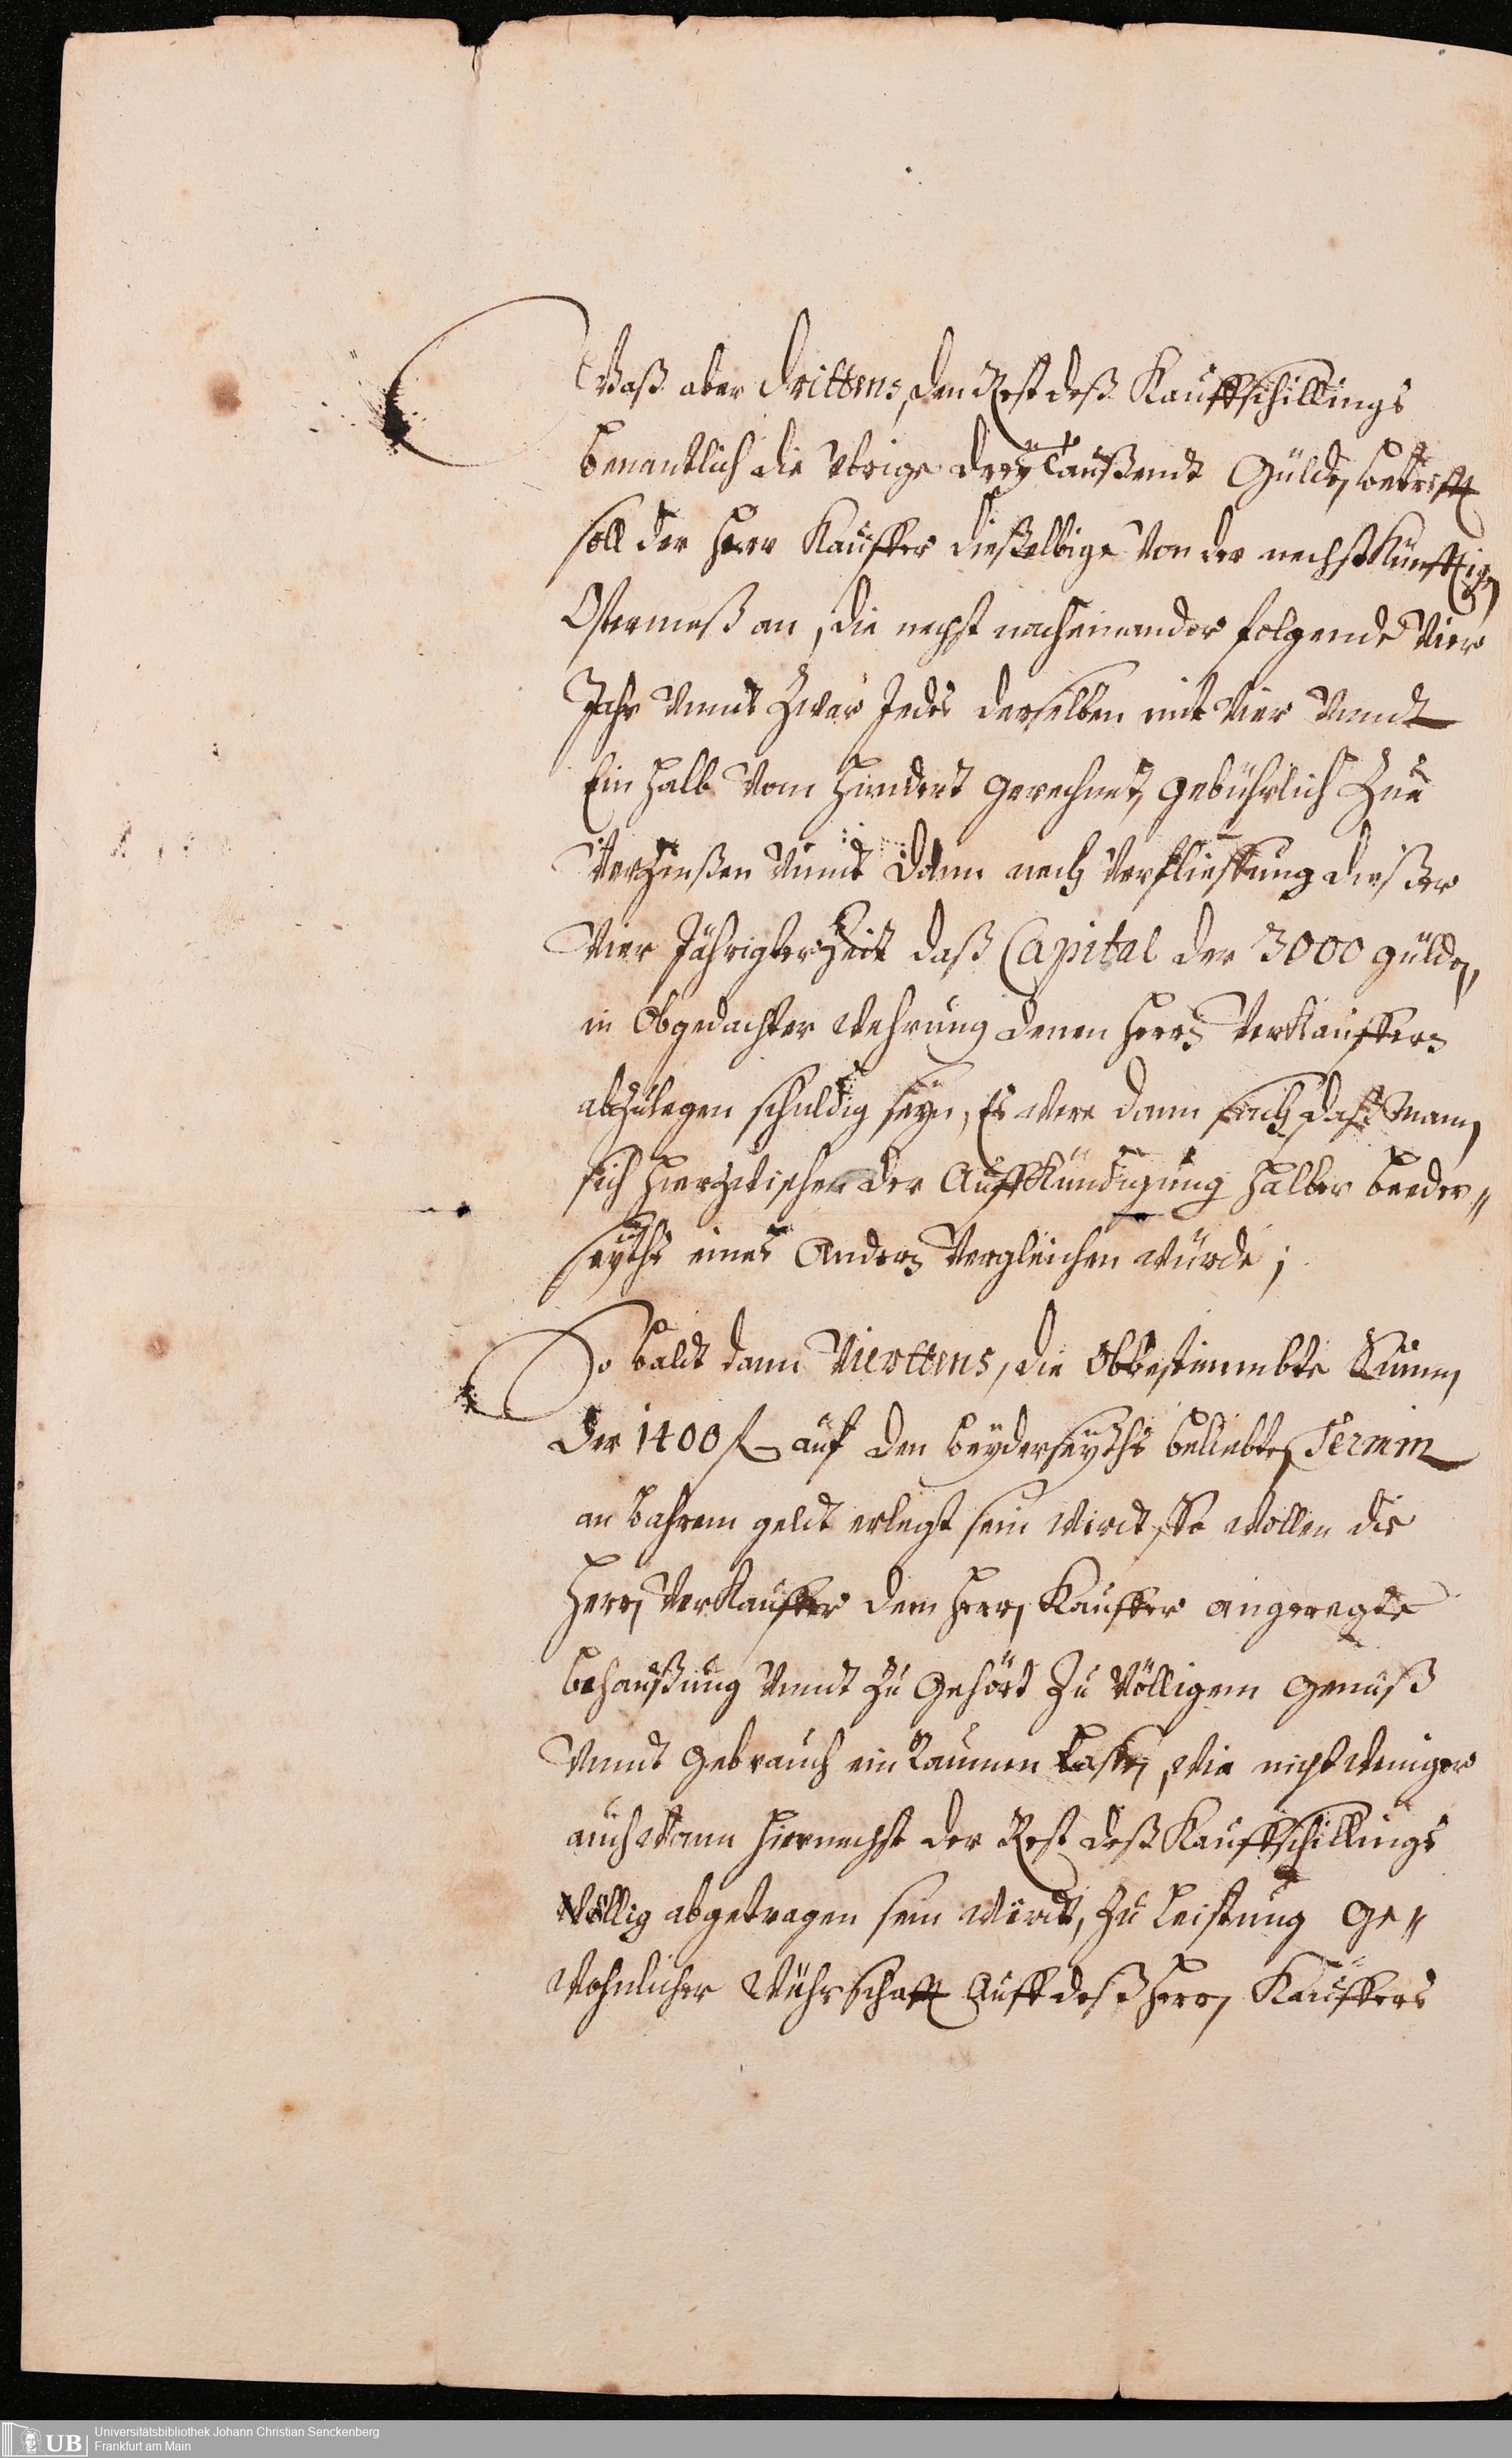 Waß aber drittens, den Rest deß Kauffschillings
benantlich die vbrige dreÿ Taußendt Gülden betrifft
soll der Herr Kauffer dießelbige von der nechst künfftigen
Ostermeß an, die nechst nacheinander folgende vier
Jahr vnndt zwar Jedes derselben mit vier vnndt
Ein halb vom hundert gerechnet, gebührlich zue
verzinßen vnndt dann nach verfliessung dießer
vier Jährigter Zeit daß Capital der 3000 gülden,
in obgedachter wehrung denen Herrn Verkauffern
abzulegen schuldig seyn, Es were dann sach, daß Mann
sich hierzwischen der Auffkündigung halber beeder„
seyths eines Andern vergleichen würde;
So baldt dann Vierttens, die obbestimmbte Summ
der 1400 fl auf den beÿderseÿths beliebten Termin
an bahrem geldt erlegt sein wirdt, so wollen die
Herrn Verkauffer dem Herrn Kauffer angeregte
behaußung vnndt zu gehört zu völligem genuß
vnndt gebrauch ein Raumen lassen, wie nicht weniger
auch wann hiernechst der Rest deß Kauffschillings
völlig abgetragen sein wirdt, zu leistung ge„
wohnlicher Währschafft auff deß Herrn Kauffers
Universitätsbibliothek Johann Christian Senckenberg
Frankfurt am Main
UB